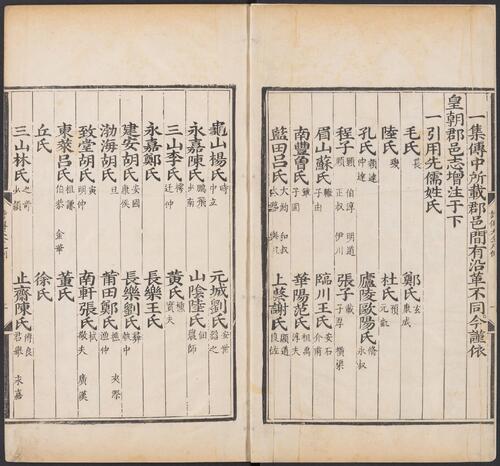 一集傳中所載郡邑間有沿革不同今謹依
皇朝郡邑志增注于下
一引用先儒姓氏
毛氏萇 鄭氏玄康成
陸氏璣 杜氏預元凱
孔氏穎達仲達 廬陵歐陽氏脩永叔
程子顥伯淳明道頤正叔伊川 張子載子厚橫渠
眉山蘇氏轍子由 臨川王氏安石介甫
南豐曾氏鞏子固 華陽范氏祖禹淳夫
藍田呂氏大鈞和叔大臨與叔 上蔡謝氏良佐顯道
龜山楊氏時中立 元城劉氏安世器之
永嘉陳氏鵬飛少南 山陰陸氏佃農師
三山李氏樗迂仲 黃氏櫄實夫
永嘉鄭氏 長樂王氏
建安胡氏安國康侯 長樂劉氏彝執中
渤海胡氏旦 莆田鄭氏樵漁仲夾漈
致堂胡氏寅明仲 南軒張氏栻敬夫廣漢
東萊呂氏祖謙伯恭金華 董氏
丘氏 徐氏
三山林氏之奇少穎 止齋陳氏傅良君舉永嘉